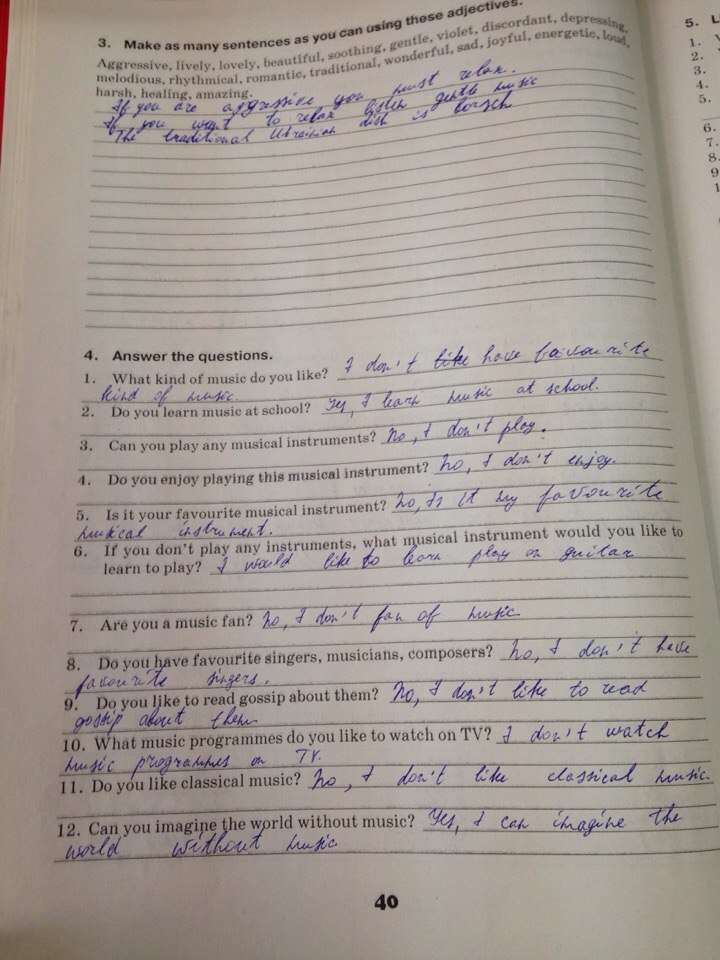 3. Make as many sentences as you can using these adjectives.
Aggressive, lively, lovely, beautiful, soothing, gentle, violet, discordant, depressing,
melodious, rhythmical, romantic, traditional, wonderful, sad, joyful, energetic, loud,
harsh, healing, amazing.
If you are aggressive you must relax.
If you want to relax listen gentle music
The traditional Ukrainian dish is borsch
4. Answer the questions.
1. What kind of music do you like? I don't like have favourite
kind of music.
2. Do you learn music at school? Yes, I learn music at school.
3. Can you play any musical instruments? No, I don't play.
4. Do you enjoy playing this musical instrument? No, I don't enjoy.
5. Is it your favourite musical instrument? No, Is it my favourite
musical instrument.
6. If you don't play any instruments, what musical instrument would you like to
learn to play? I would like to learn play on guitar
7. Are you a music fan? No, I don't fan of music
8. Do you have favourite singers, musicians, composers? No, I don't have
favourite singers.
9. Do you like to read gossip about them? No, I don't like to read
gossip about them
10. What music programmes do you like to watch on TV? I don't watch
music programmes on TV.
11. Do you like classical music? No, I don't like classical music.
12. Can you imagine the world without music? Yes, I can imagine the
world without music
40
5. L
1.
2.
3.
4.
5.
6.
7.
8.
9
1